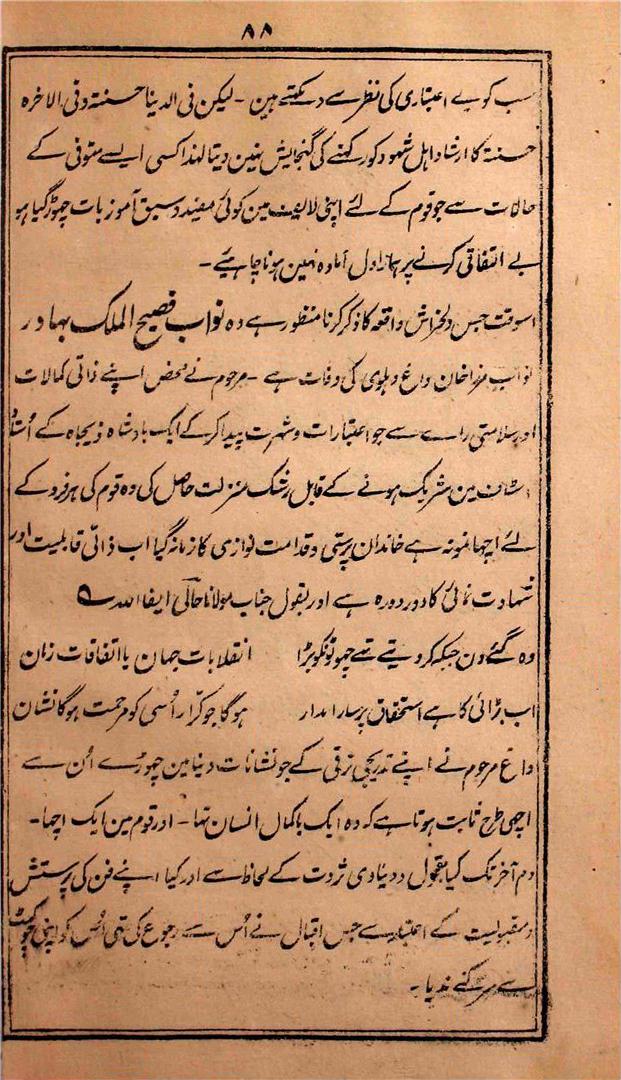 ۸۸
سب کو بے اعتباری کی نظر سے دیکھتے ہین - لیکن فی الدنیا حسنۃ وفی الاخرہ
حسنۃ کا ارشاد اہل شہود کو رکہنے کی گنجایش نہین دیتا لہذا کسی ایسے متوفی کے
حالات سے جو قوم کے لئے اپنی لائف مین کوئی مفید و سبق آموز بات چھوڑ گیا ہو
بے التفاتی کرنے پر ہمارا دل آمادہ نہین ہونا چاہیئے -
اسوقت جس دلخراش واقعہ کا ذکر کرنا منظور ہے وہ نواب فصیح الملک بہادر
نواب مرزا خان داغ دہلوی کی وفات ہے - مرحوم نے محض اپنے ذاتی کمالات
اور سلامتی راے سے جو اعتبارات و شہرت پیدا کر کے ایک بادشاہ ذیجاہ کے
اسٹاف مین شریک ہونے کے قابل رشک منزلت حاصل کی وہ قوم کی ہر فرد کے
لئے اچہا نمونہ ہے خاندان پرستی و قدامت نوازی کا زمانہ گیا اب ذاتی قابلیت اور
شہادت نمائی کا دور دورہ ہے اور بقول جناب مولانا حالی ایفا اللہ ؎
وہ گئے دن جبکہ کر دیتے تہے چہوٹونکو بڑا انقلابات جہان یا اتفاقات زمان
اب بڑائی کا ہے استحقاق پر سارا مدار ہوگا جو کرّار اُسی کو مرحمت ہوگا نشان
داغ مرحوم نے اپنے تدریجی ترقی کے جو نشانات دنیا مین چہوڑے اُن سے
اچہی طرح ثابت ہوتا ہے کہ وہ ایک باکمال انسان تہا - اور قوم مین ایک اچہا -
دم آخر تک کیا بقول و دنیاوی ثروت کے لحاظ سے اور کیا اپنے فن کی پرستش
و مقبولیت کے اعتبار سے جس اقبال نے اُس سے رجوع کی تہی اُس کو اپنی چوکہٹ
سے سرکنے ندیا -